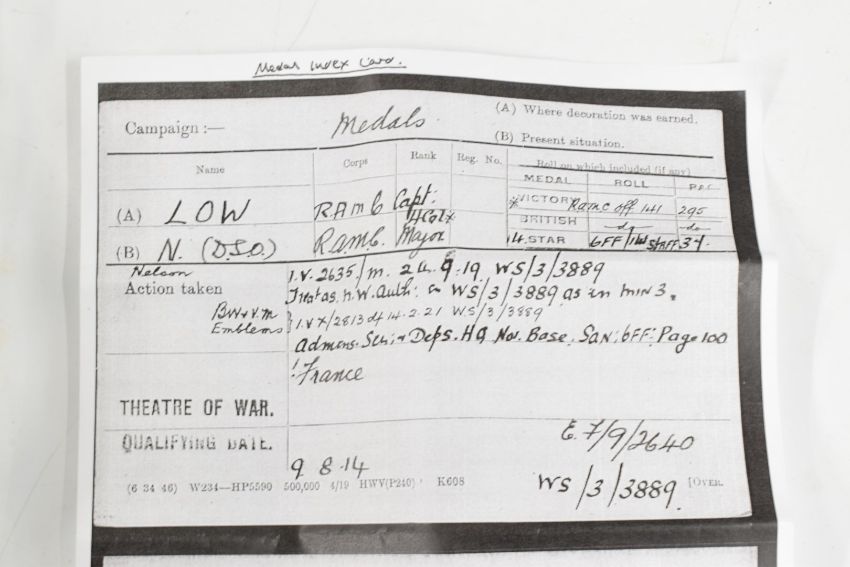 Medal Index Card.
(A) Where decoration was earned.
Campaign :— Medals.
(B) Present situation.
Name Corps Rank Reg. No. Roll on which included (if any)
MEDAL ROLL PAGE
(A) LOW R.A.M.C Capt: * VICTORY RAMC off 141 295
A/Col * BRITISH -do- -do-
(B) N. (D.S.O.) R.A.M.C. Major 14 STAR OFF/1 STAFF 34.
Nelson
Action taken I.V. 2635/M. 9.19 WS/3/3889
n.W. Auth: WS/3/3889 as in min 3.
BW & V.M
Emblems } I.V X/2813 df 14.2.21 WS/3/3889
Depts. HQ Base. San: Off: Page 100
France
THEATRE OF WAR.
QUALIFYING DATE.
E. 7/9/2640
9 8.14
(6 34 46) W234—HP5590 500,000 4/19 HWV(P240) K608
WS/3/3889. [OVER.